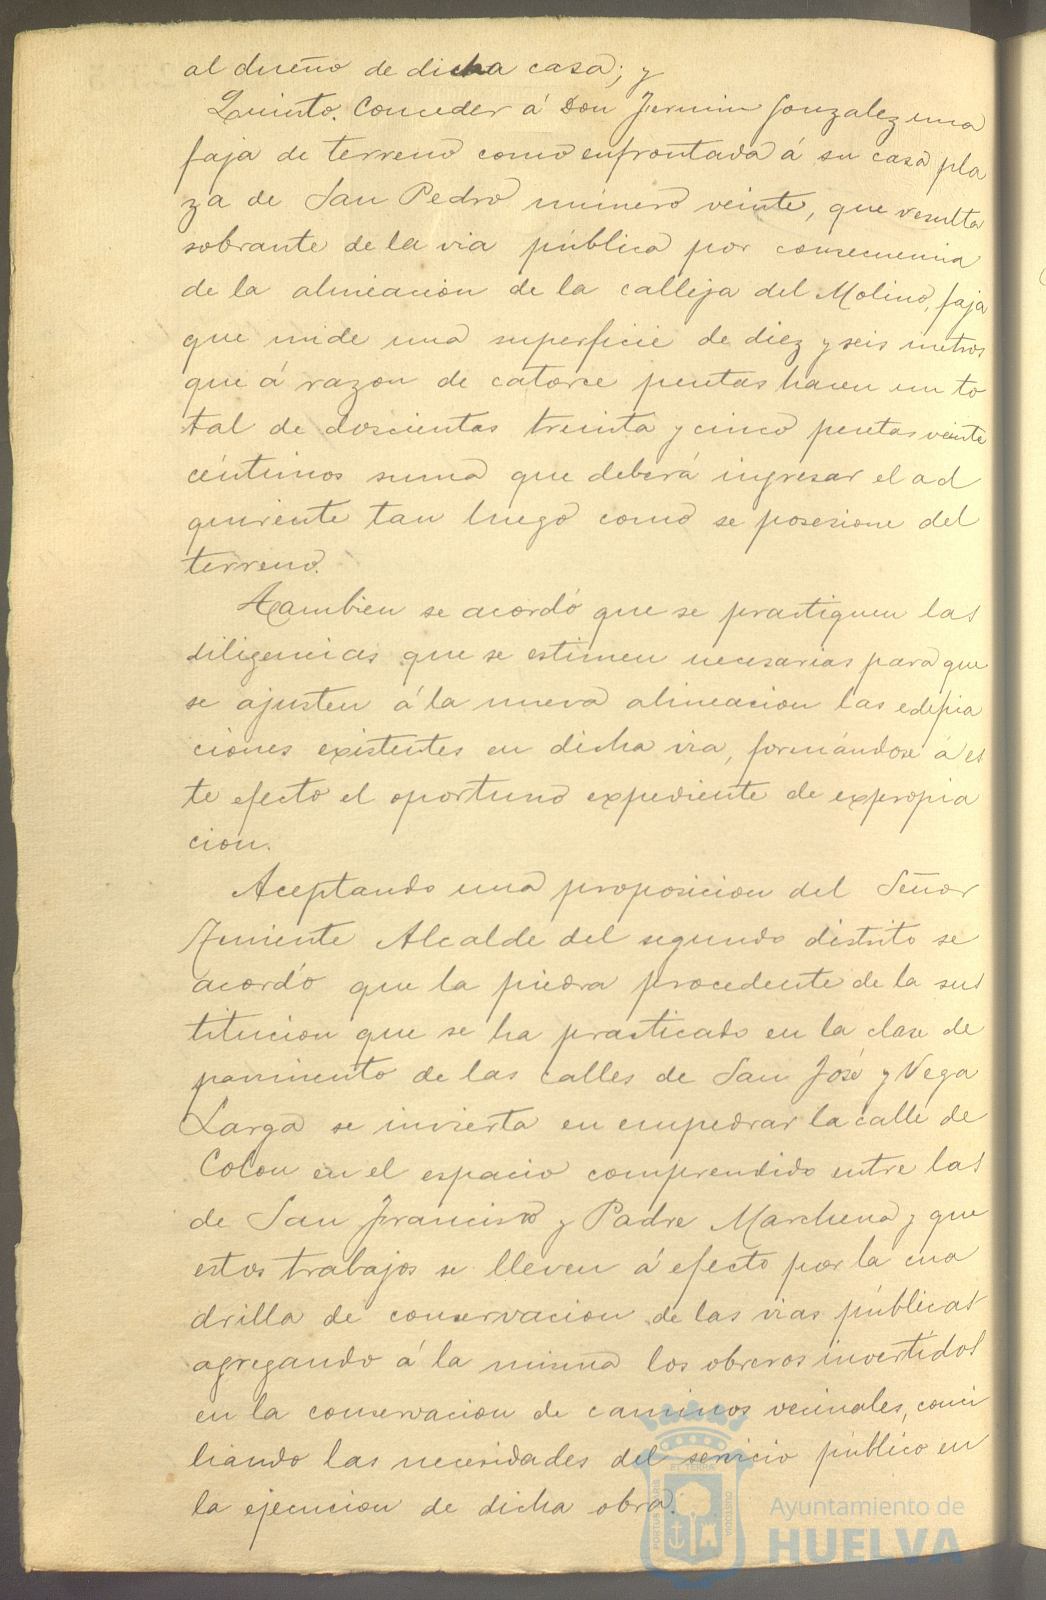 al dueño de dicha casa; y
Quinto. Conceder á Don Fermin Gonzalez una
faja de terreno como enfrontada á su casa pla
za de San Pedro número veinte, que resulta
sobrante de la via pública por consecuencia
de la alineacion de la calleja del Molino, faja
que mide una superficie de diez y seis metros
que á razon de catorce pesetas hacen un to
tal de doscientas treinta y cinco pesetas veinte
céntimos suma que deberá ingresar el ad
quirente tan luego como se posesione del
terreno.
Tambien se acordó que se practiquen las
diligencias que se estimen necesarias para que
se ajusten á la nueva alineacion las edifica
ciones existentes en dicha via, formándose á es
te efecto el oportuno expediente de expropia
cion.
Aceptando una proposicion del Señor
Teniente Alcalde del segundo distrito se
acordó que la piedra procedente de la sus
titucion que se ha practicado en la clase de
pavimento de las calles de San José y Vega
Larga se invierta en empedrar la calle de
Colon en el espacio comprendido entre las
de San Francisco y Padre Marchena y que
estos trabajos se lleven á efecto por la cua
drilla de conservacion de las vias públicas
agregando á la misma los obreros invertidos
en la conservacion de caminos vecinales, conci
liando las necesidades del servicio público en
la ejecucion de dicha obra.
Ayuntamiento de
HUELVA